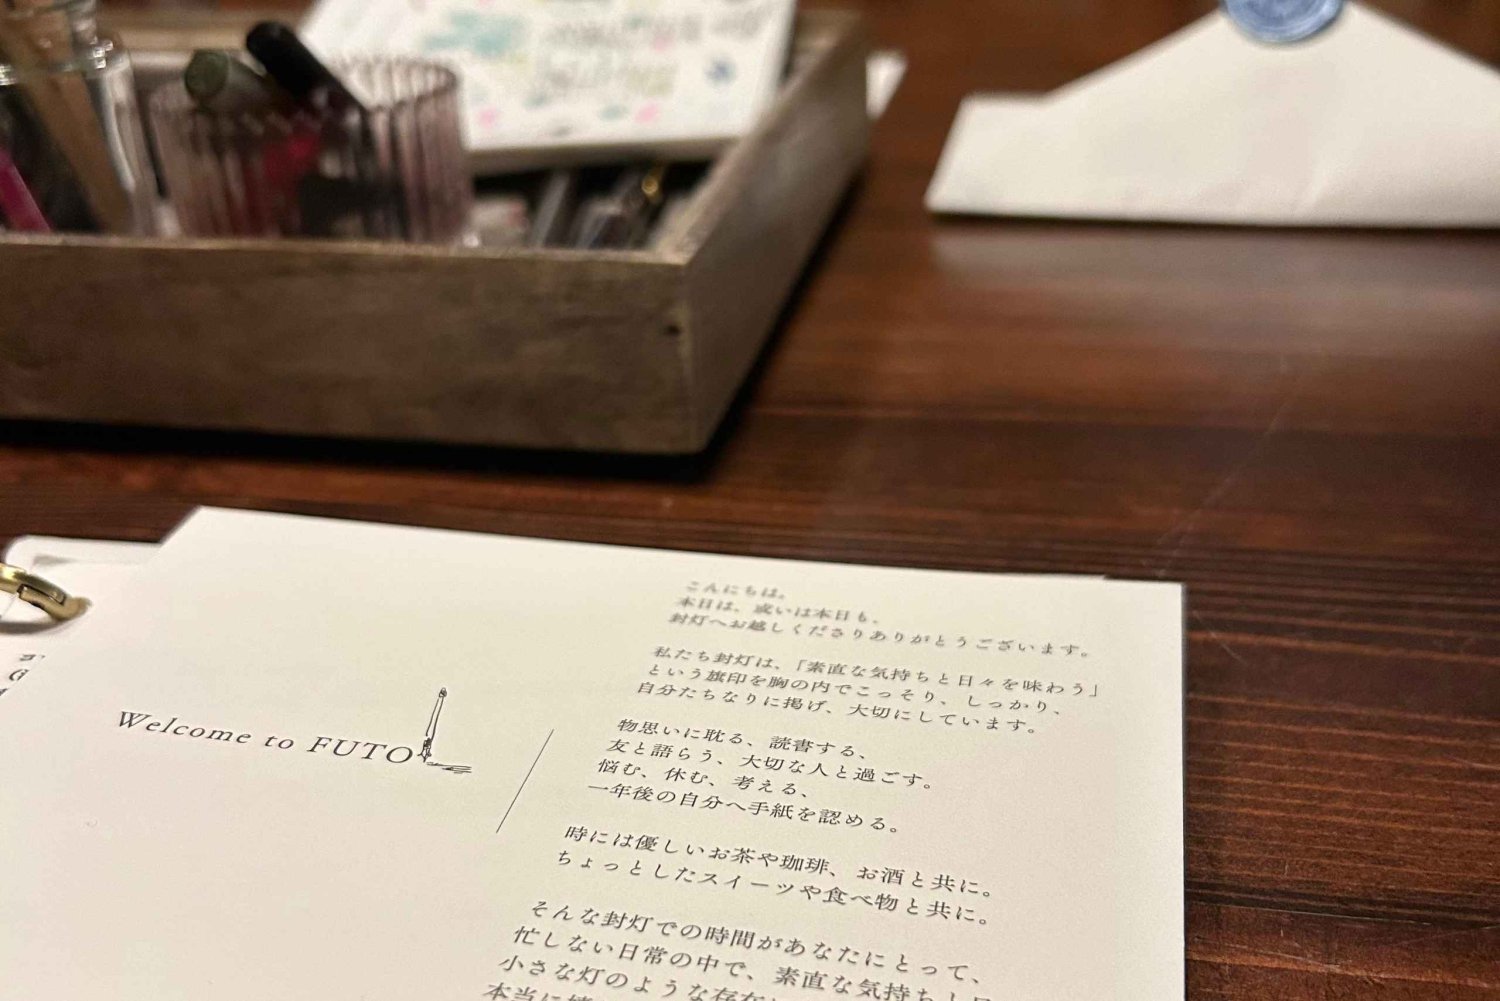 Welcome to FUTO
こんにちは。
本日は、或いは本日も、
封灯へお越しくださりありがとうございます。
私たち封灯は、「素直な気持ちと日々を味わう」
という旗印を胸の内でこっそり、しっかり、
自分たちなりに掲げ、大切にしています。
物思いに耽る、読書する、
友と語らう、大切な人と過ごす。
悩む、休む、考える、
一年後の自分へ手紙を認める。
時には優しいお茶や珈琲、お酒と共に。
ちょっとしたスイーツや食べ物と共に。
そんな封灯での時間があなたにとって、
忙しない日常の中で、素直な気持ちと日
小さな灯のような存在
本当に